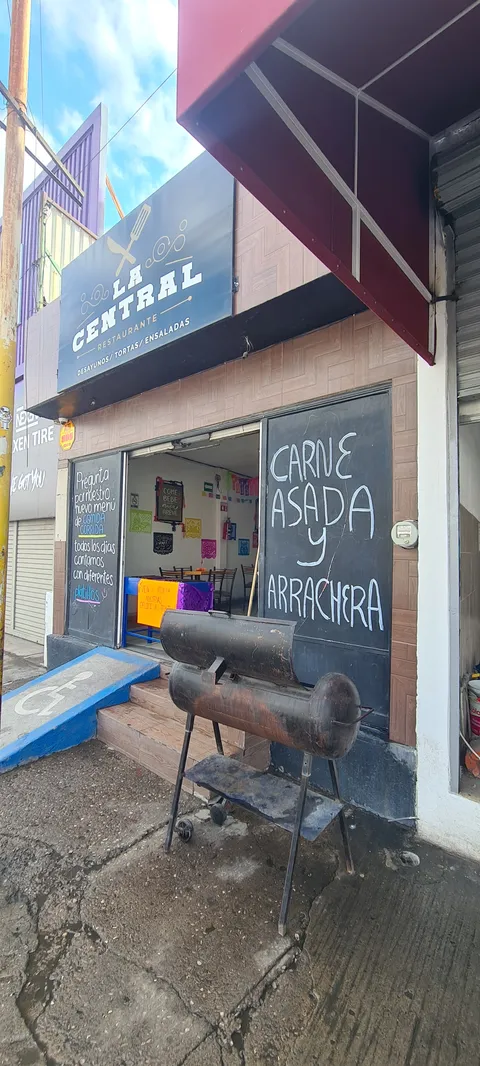 LA
CENTRAL
RESTAURANTE
DESAYUNOS/ TORTAS/ ENSALADAS
XEN TIRE
GOT YOU
Pregunta
por nuestro
nuevo menú
de COMIDA
CORRIDA
todos los días
contamos
con diferentes
platillos
CARNE
ASADA
y
ARRACHERA